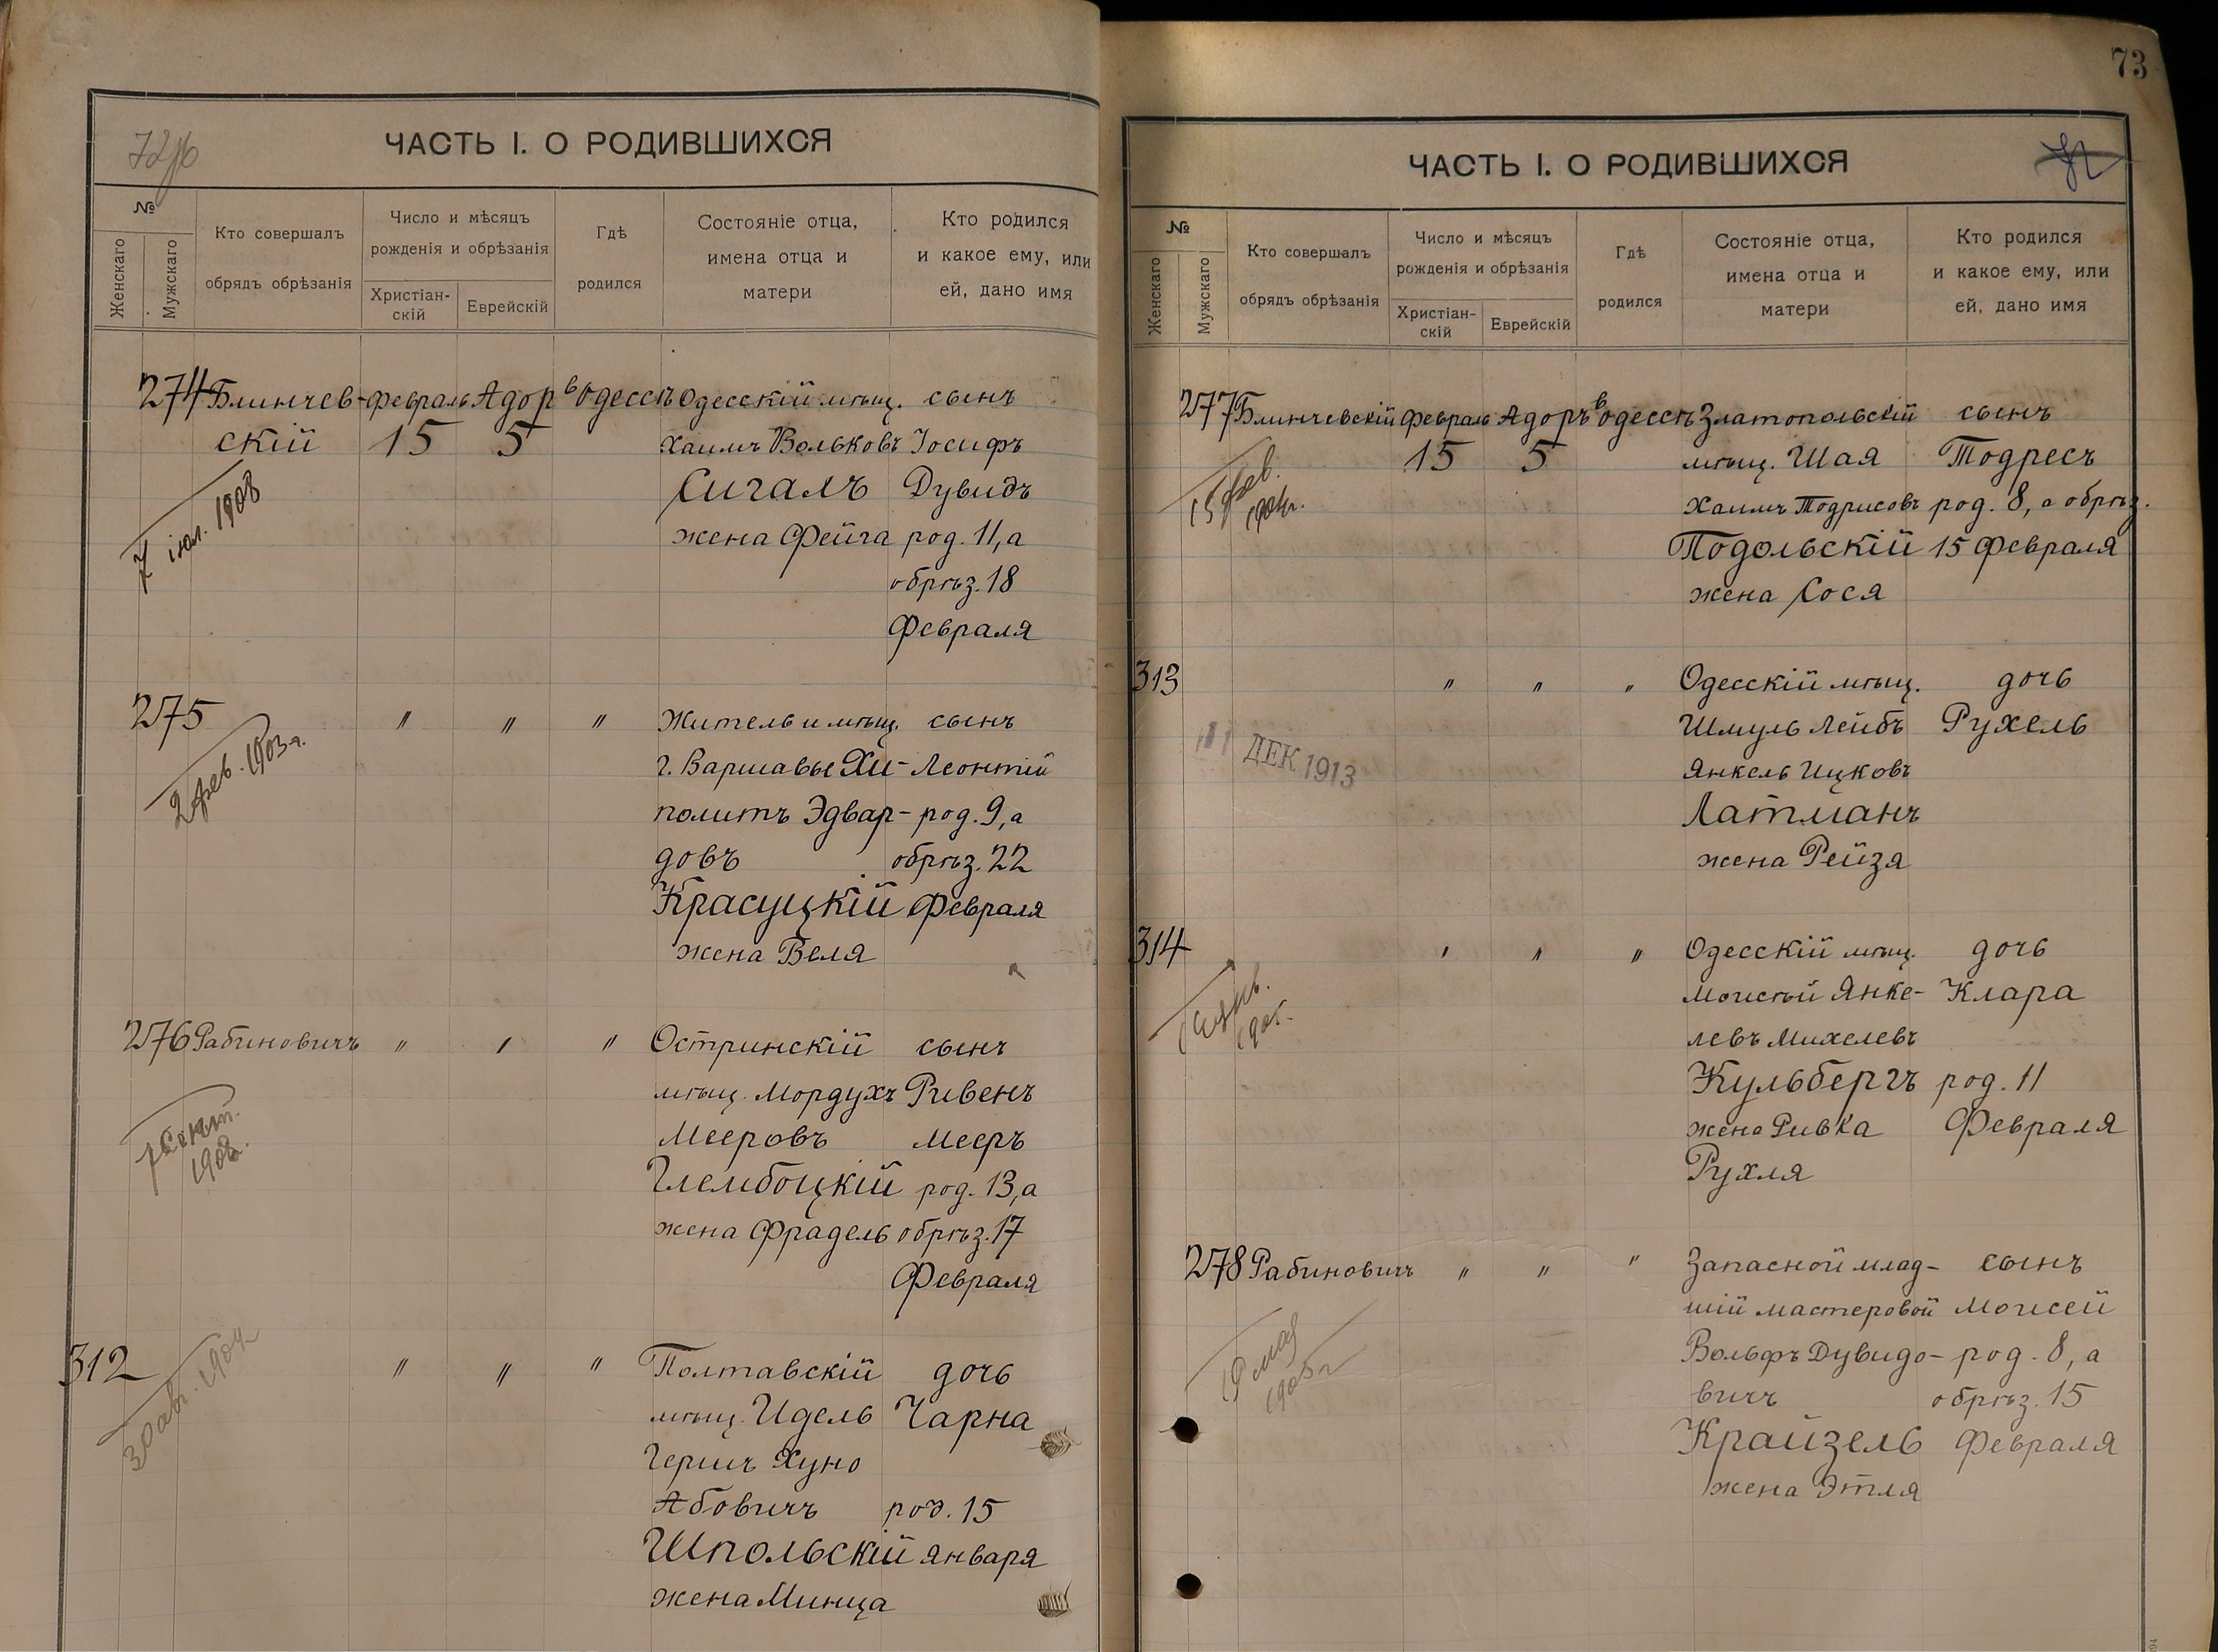 72об
ЧАСТЬ I. О РОДИВШИХСЯ
№
Женскаго
Мужскаго
Кто совершалъ
обрядъ обрѣзанія
Число и мѣсяцъ
рожденія и обрѣзанія
Христіан-
скій
Еврейскій
Гдѣ
родился
Состояніе отца,
имена отца и
матери
Кто родился
и какое ему, или
ей, дано имя
274 Блинчев- Февраль Адор в Одессѣ Одесскій мѣщ. сынъ
скій 15 5 Хаимъ Вольковъ Іосифъ
Сигалъ Дувидъ
7 іюл. 1908
жена Фейга род. 11, а
обрѣз. 18
Февраля
275 " " " Житель и мѣщ. сынъ
г. Варшавы Хи- Леонтій
2 фев. 1903 г.
политъ Эдвар- род. 9, а
довъ обрѣз. 22
Красуцкій Февраля
жена Веля
276 Рабиновичъ " " " Остринскій сынъ
мѣщ. Мордухъ Рувенъ
Мееровъ Мееръ
1908
Глембоцкій род. 13, а
жена Фрадель обрѣз. 17
Февраля
312 " " " Полтавскій дочь
мѣщ. Идель Чарна
30 авг. 1904
Гершъ Хуно
Абовичъ род. 15
Шпольскій января
жена Минца
73
ЧАСТЬ I. О РОДИВШИХСЯ
№
Женскаго
Мужскаго
Кто совершалъ
обрядъ обрѣзанія
Число и мѣсяцъ
рожденія и обрѣзанія
Христіан-
скій
Еврейскій
Гдѣ
родился
Состояніе отца,
имена отца и
матери
Кто родился
и какое ему, или
ей, дано имя
277 Блинчевскій Февраль Адоръ в Одессѣ Златопольскій сынъ
15 5 мѣщ. Шая Тодресъ
15 фев.
1904г.
Хаимъ Тодрисовъ род. 8, а обрѣз.
Подольскій 15 Февраля
жена Сося
313 " " " Одесскій мѣщ. дочь
Шмуль Лейбъ Рухель
11 ДЕК 1913
Янкель Ицковъ
Латманъ
жена Рейзя
314 " " " Одесскій мѣщ. дочь
Моисей Янке- Клара
левъ Михелевъ
Кульбергъ род. 11
жена Ривка Февраля
Рухля
278 Рабиновичъ " " " Запасной млад- сынъ
шій мастеровой Моисей
Вольфъ Дувидо- род. 8, а
вичъ обрѣз. 15
1905 г
Крайзель Февраля
жена Этля